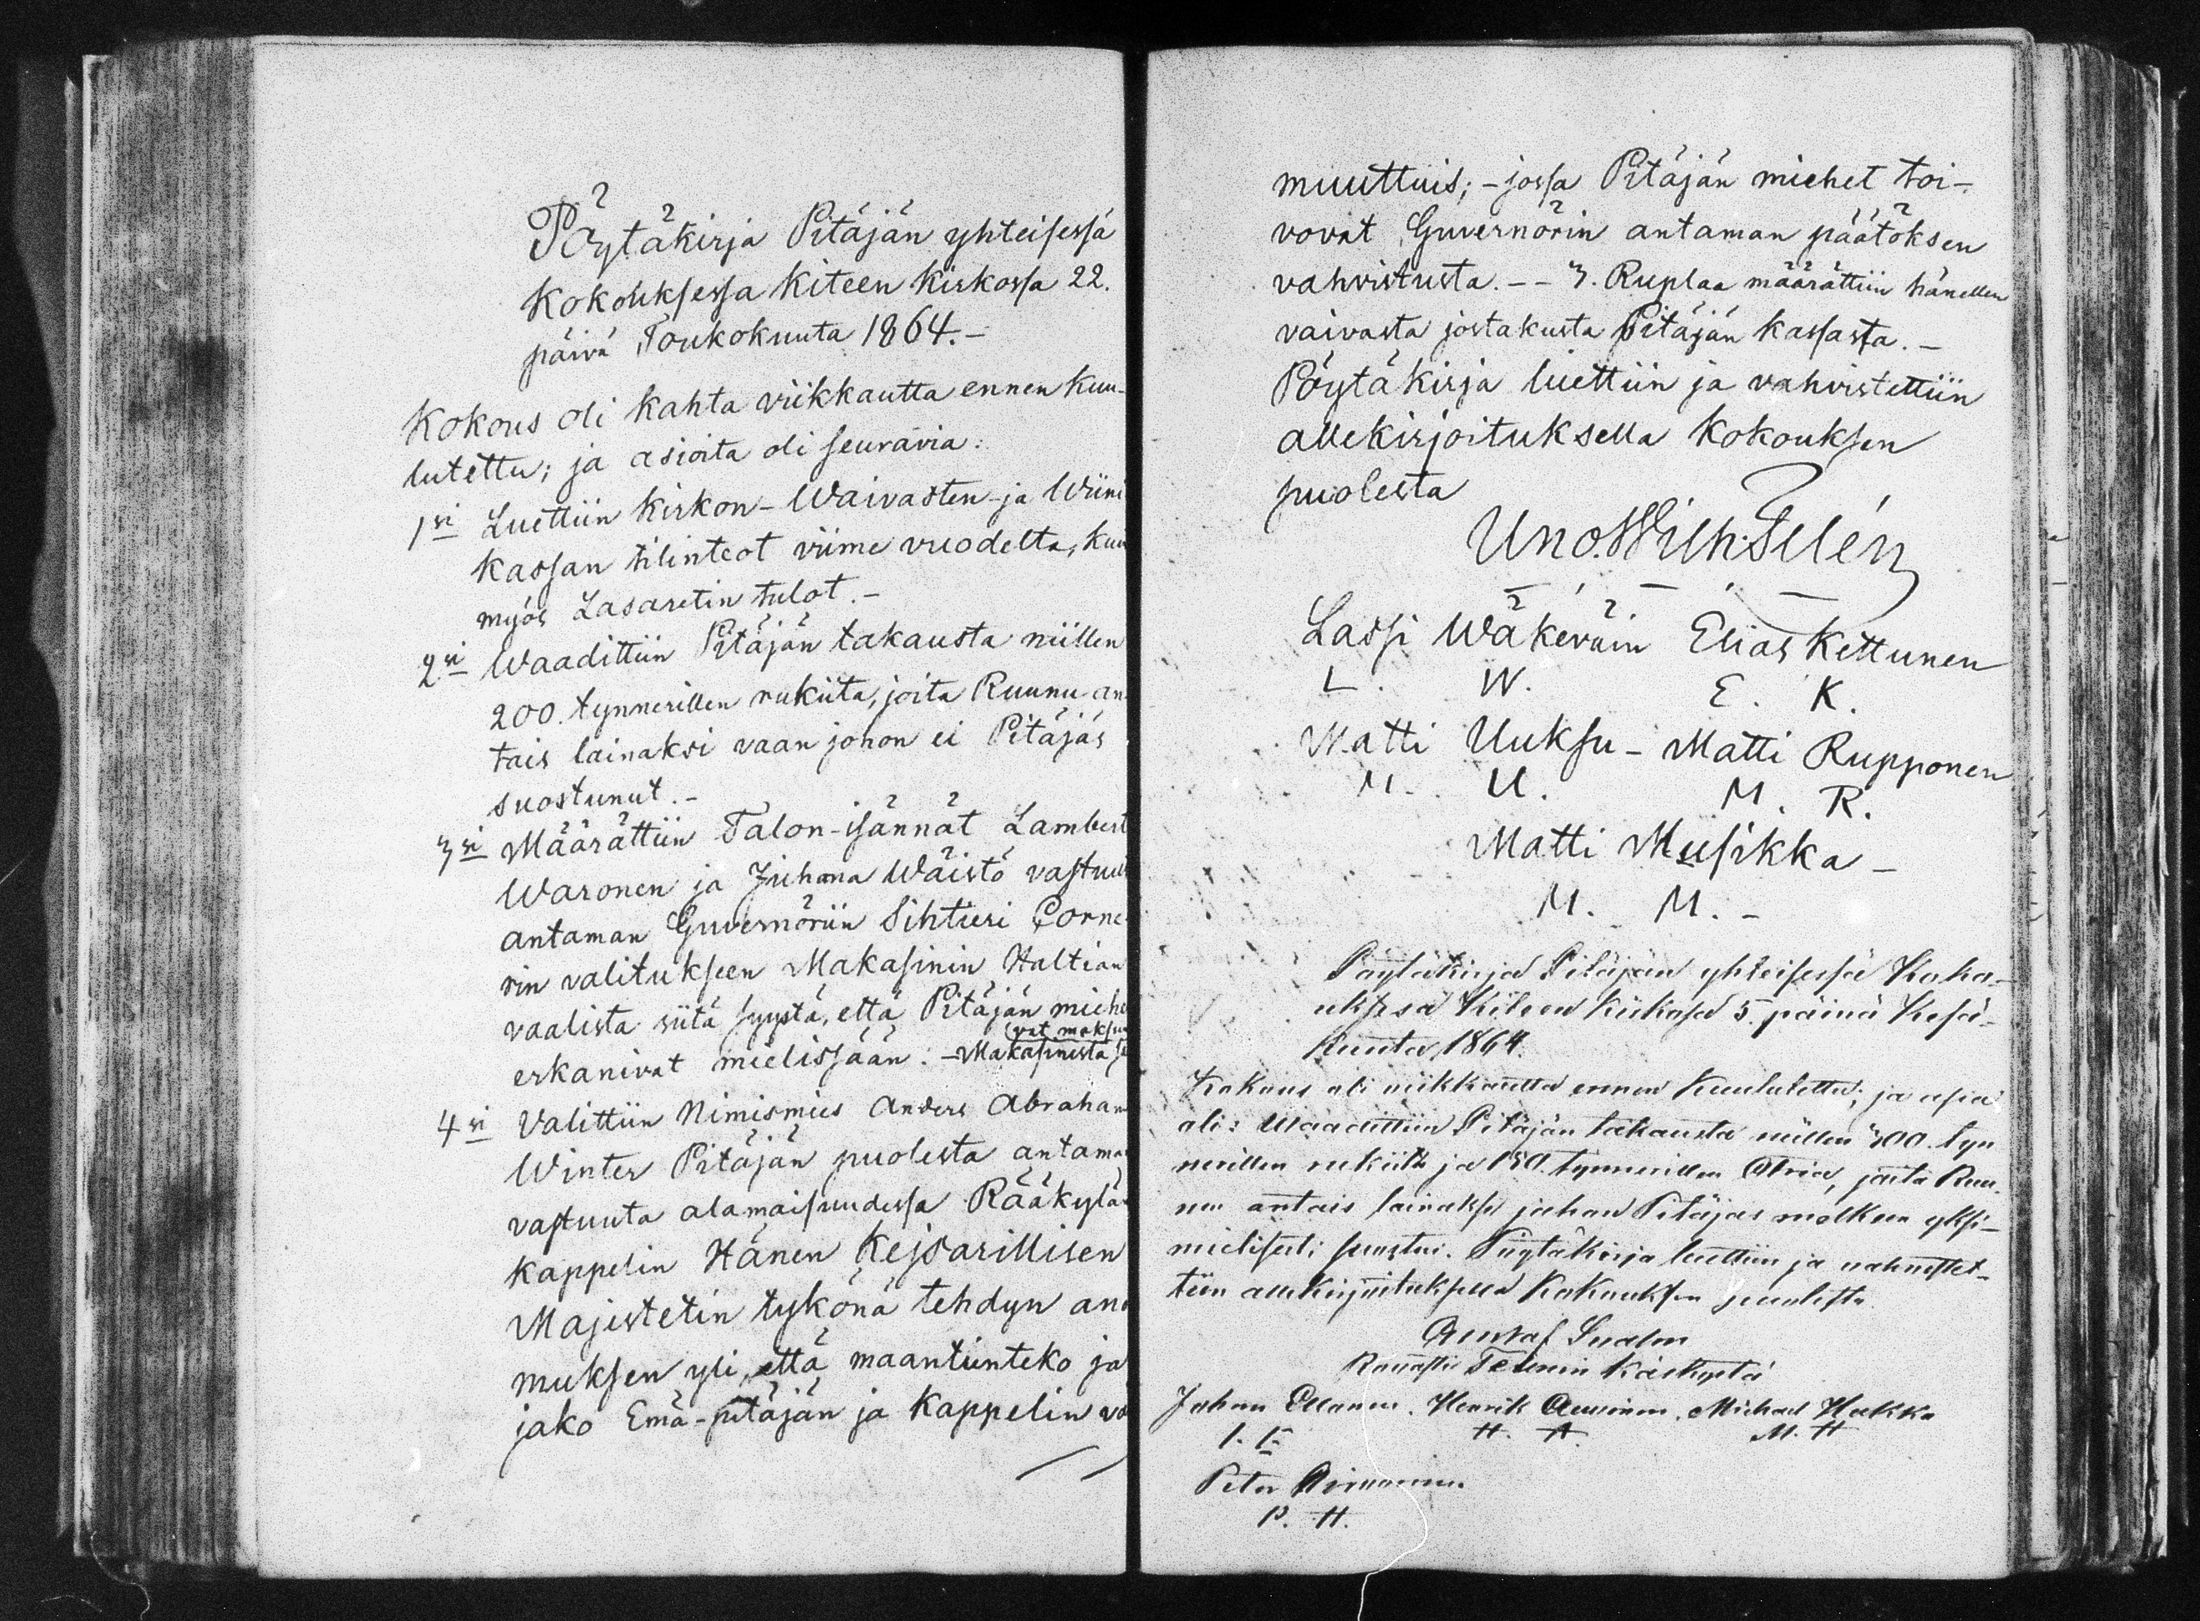 Pöytäkirja Pitäjän yhteisessä
Kokouksessa Kiteen Kirkossa 22.
päivä Toukokuuta 1864. –
Kokous oli kahta viikkautta ennen kuu-
lutettu; ja asioita oli seuravia:
1si Luettiin Kirkon- Waivasten- ja Wiini
kassan tilinteot viime vuodelta, kuin
myös Lasaretin tulot. –
2si Waadittiin Pitäjän takausta niillen
200. tynnerillen rukiita, joita Ruunu an-
tais lainaksi vaan johon ei Pitäjäs
suostunut. –
3si Määrättiin Talon-isännät Lambert
Waronen ja Juhana Wäistö vastuu
antaman Guvernöriin Sihtieri Corne-
rin valitukseen Makasinin Haltian
vaalista siitä syystä, että Pitäjän miehe
(vat maksu
erkanivat mielissään. – Makasinista
4si Valittiin Nimismies Anders Abraham
Winter Pitäjän puolesta antama
vastuuta alamaisuudessa Rääkylä
kappelin Hänen Kejsarillisen
Majestetin tykönä tehdyn ano
muksen yli, että maantiinteko ja
jako Emä-pitäjän ja Kappelin vä
muuttuis; – jossa Pitäjän miehet toi-
vovat Guvernörin antaman päätöksen
vahvistusta. – – 3. Ruplaa määrättiin hänellen
vaivasta jostakusta Pitäjän kassasta. –
Pöytäkirja luettiin ja vahvistettiin
allekirjoituksella Kokouksen
puolesta
Uno Wilh. Telén
Lassi Wäkeväin Elias Kettunen
L. W. E. K.
Matti Uuksu – Matti Rupponen
M. U. M. R.
Matti Musikka –
M. M. –
Pöytäkirja Pitäjän yhteisessä Koko-
uksesa Kiteen Kirkosa 5. päivä Kesä-
kuuta 1864.
Kokous oli viikkautta ennen Kuulutettu; ja asia
oli: Waadittiin Pitäjän takausta niillen 300. tyn
nerillen rukiita ja 150. tynnerillen Otria, joita Ruu-
nu antais lainaksi johon Pitäjäs melkeen yksi-
mielisesti suostui. Pöytäkirja luettiin ja vahvistet-
tiin allekirjoituksella Kokouksen puolesta
Gustaf
Telenin käskystä
Johan Ellanen. Henrik Michael Hukka
J. E. H. A. M. H
Peter
P. H.